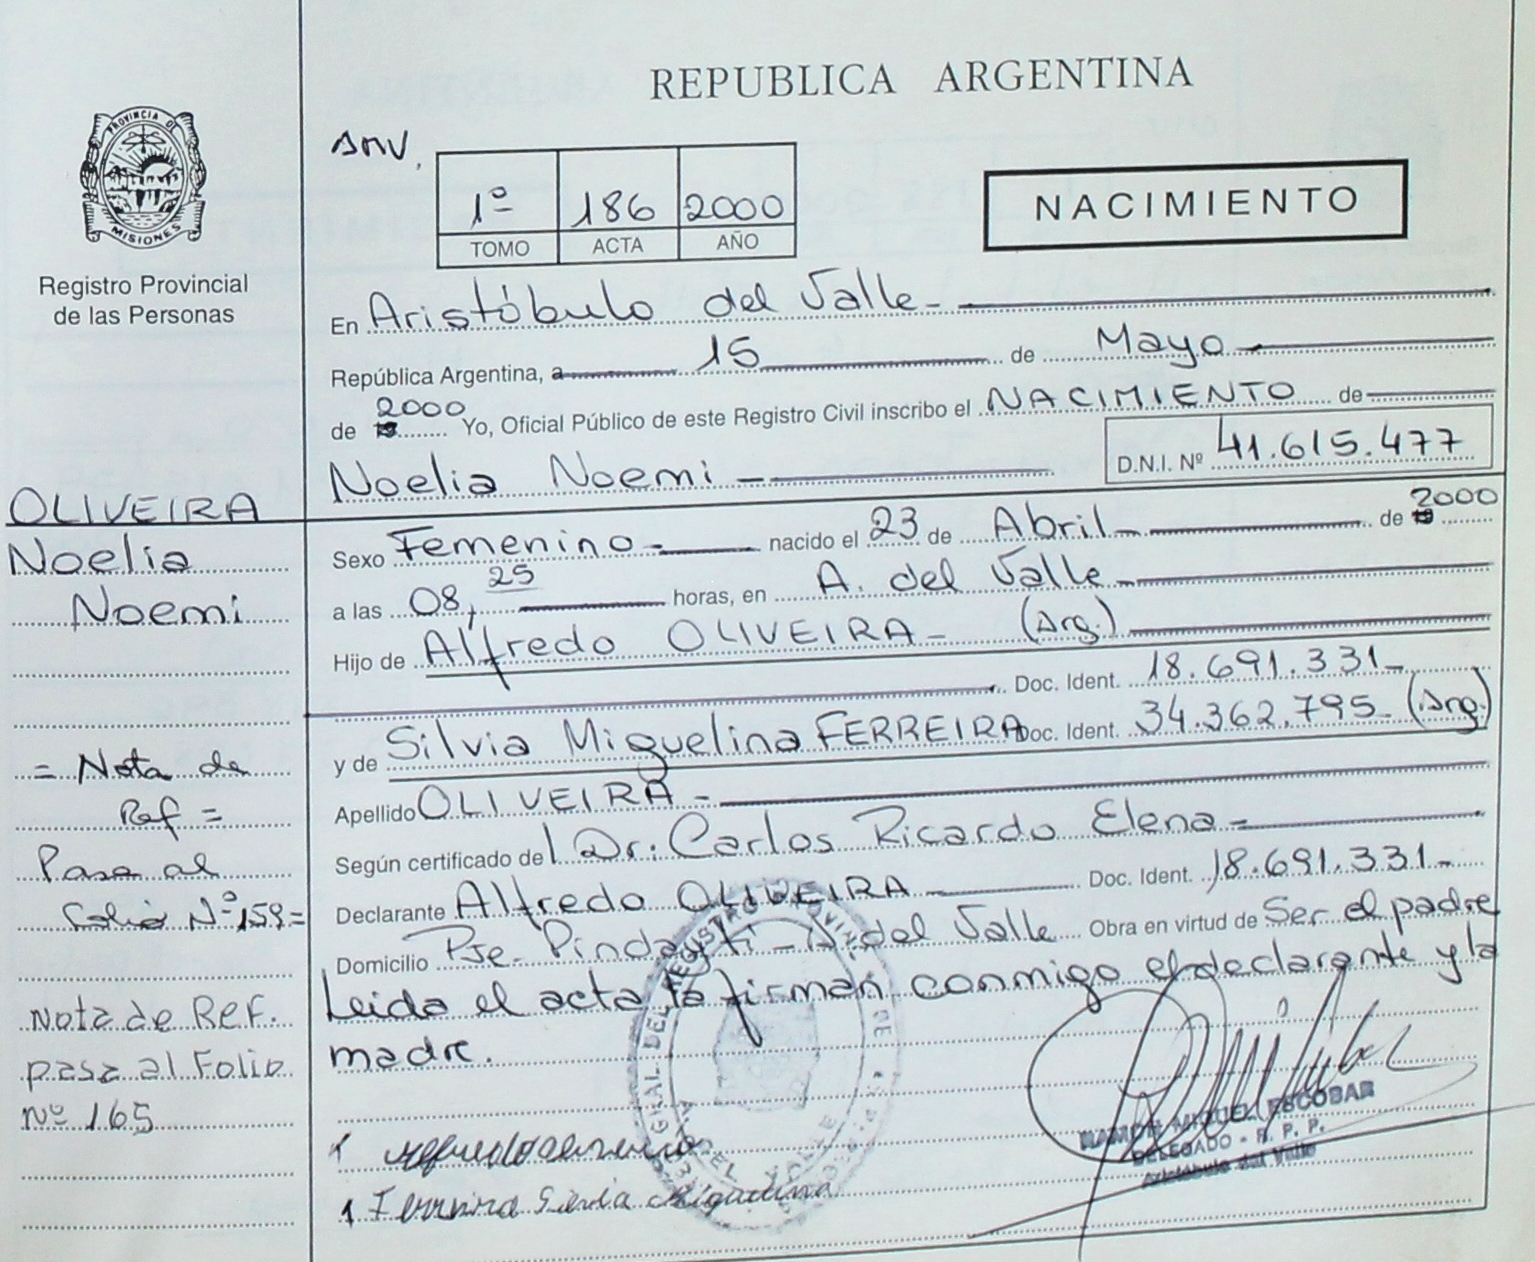 REPUBLICA ARGENTINA
PROVINCIA DE
MISIONES
Registro Provincial
de las Personas
1º 186 2000
TOMO ACTA AÑO
NACIMIENTO
En Aristóbulo del Valle-
República Argentina, a 15 de Mayo
2000
de 19 Yo, Oficial Público de este Registro Civil inscribo el NACIMIENTO de
Noelia Noemi - D.N.I. Nº 41.615.477
OLIVEIRA
Noelia
Noemi
Sexo Femenino- nacido el 23 de Abril- de 19 2000
a las 08,25 horas, en A. del Valle-
Hijo de Alfredo OLIVEIRA- (Arg.)
Doc. Ident. 18.691.331-
y de Silvia Miguelina FERREIRA Doc. Ident. 34.362.795- (Arg.)
Apellido OLIVEIRA-
Según certificado del Dr: Carlos Ricardo Elena-
Declarante Alfredo OLIVEIRA Doc. Ident. 18.691.331-
Domicilio Pje- Pindayti - A. del Valle Obra en virtud de Ser el padre
Leida el acta la firman conmigo el declarante y la
madre.
= Nota de
Ref =
Pasa al
Folio Nº 159=
Nota de Ref.
pasa al Folio
Nº 165
Ferreira Silvia Miguelina
RAMON MIGUEL ESCOBAR
DELEGADO - R. P. P.
Aristóbulo del Valle